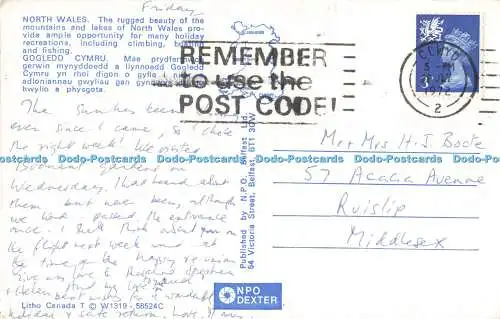 Friday
NORTH WALES. The rugged beauty of the
mountains and lakes of North Wales pro-
vide ample opportunity for many holiday
recreations, including climbing, boating
and fishing.
GOGLEDD CYMRU. Mae prydferthwch
gerwin mynyddoedd a llynnoedd Gogledd
Cymru yn rhoi digon o gyfle i
adloniannau gwyliau gan gynnwys
hwylio a physgota.
REMEMBER
to use the
POST CODE!
1972
2
The sun has been
ever since I came, so I chose
the right week! We visited
Bodnant Gardens on
Wednesday. I had heard about
them but never been, although
we had passed the entrance
once. I shall think about you on
the flight next week and at
the time of the happy reunion
Give my love to
Helen and
best wishes for a wonderful
holiday & safe return, love
Mr & Mrs H. J. Boote
57 Acacia Avenue
Ruislip
Middlesex
Published by N.P.O. Belfast Ltd.
54 Victoria Street, Belfast, BT1 3DW
NPO
DEXTER
Litho Canada T © W1319 - 58524C
Dodo-Postcards Dodo-Postcards Dodo-Postcards Dodo-Postcards Dodo-Postcards Dodo-Postcards